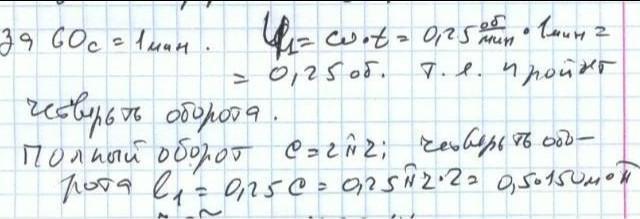 за 60с = 1мин. φ₁ = ω·t = 0,25 об/мин · 1мин =
= 0,25 об. т.е. пройдет
четверть оборота.
Полный оборот C = 2πr; четверть обо-
рота l₁ = 0,25 C = 0,25πr·2 = 0,5·150м·π